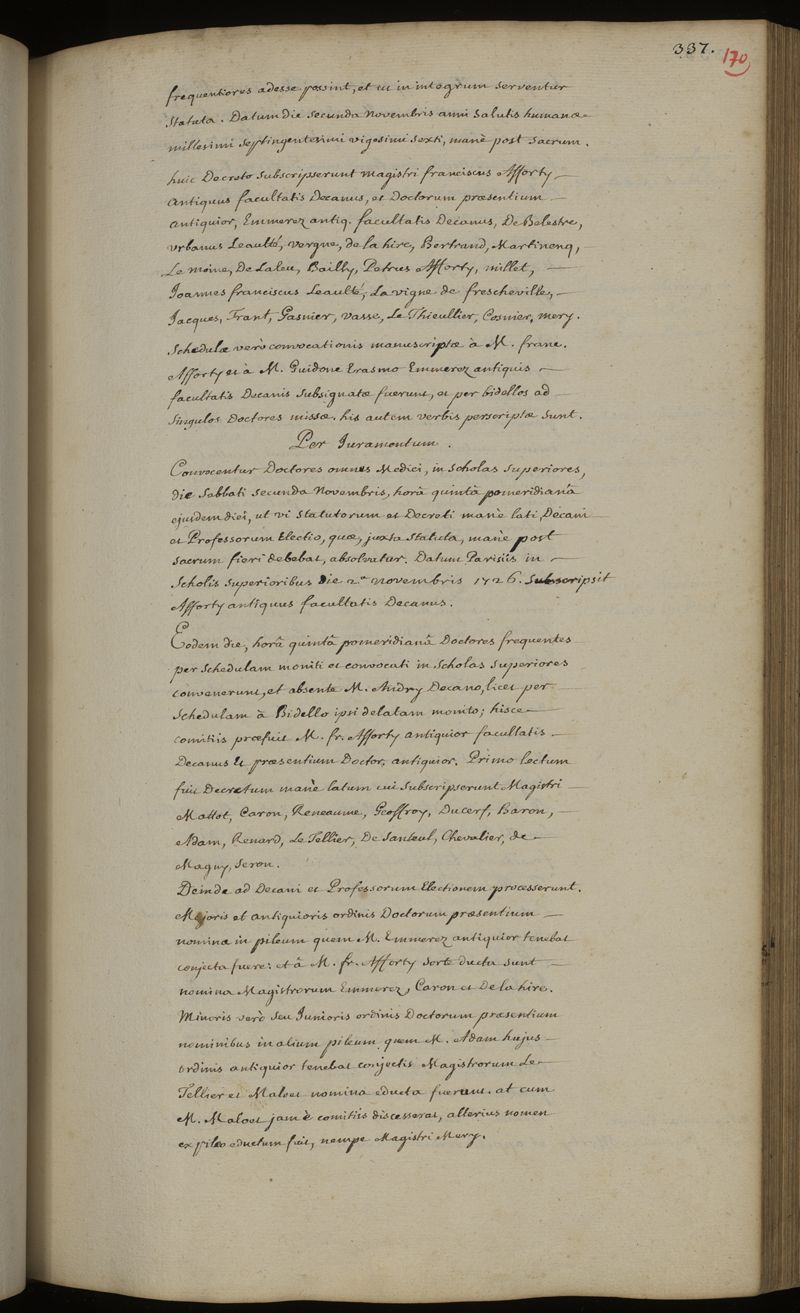 337.
170
frequentiores adesse possint, et ut in integrum serventur
Statuta. Datum die secunda Novembris anni salutis humanæ
millesimi septingentesimi vigesimi sexti, manè post sacrum.
huic Decreto subscripserunt Magistri franciscus Afforty
Antiquus facultatis Decanus, et Doctorum præsentium
antiquior, Emmerez antiq. facultatis Decanus, De Belestre,
urbanus Leaulté, vergne, de la hire, Bertrand, Martinenq,
Le moine, De Laleu, Bailly, Petrus Afforty, millet,
Joannes franciscus Leaulté, La vigne de frescheville,
Jacques, Frant, Gasnier, vasse, Le Thieullier, Cosnier, mery.
Schedulæ verò convocationis manuscriptæ à M. franc.
Afforty et à M. Guidone Erasmo Emmerez antiquis
facultatis Decanis subsignatæ fuerunt, et per bidellos ad
singulos Doctores missæ. his autem verbis perscriptæ sunt.
Per Juramentum.
Convocentur Doctores omnes Medici, in Scholas superiores,
die Sabbati secunda Novembris, horâ quintâ pomeridianâ
ejusdem diei, ut vi statutorum et Decreti manè lati, Decani
et Professorum Electio, quæ, juxta statuta, manè post
sacrum fieri debebat, absolvatur. Datum Parisiis in
Scholis superioribus die 2.ª novembris 1726. Subscripsit
Afforty antiquus facultatis Decanus.
Eodem die, horâ quintâ pomeridianâ Doctores frequentes
per schedulam moniti et convocati in scholas superiores
convenerunt, et absente M. Andry Decano, licet per
schedulam à Bidello ipsi delatam monito; hisce
comitiis præfuit M. fr. Afforty antiquior facultatis
Decanus et præsentium Doctor. antiquior. Primo lectum
fuit Decretum manè latum cui subscripserunt Magistri
Mattot, Caron, Reneaume, Geoffroy, Ducerf, Baron,
Adam, Renard, Le Tellier, De Santeul, Chevalier, de
Magny, Seron.
Deinde ad Decani et Professorum Electionem processerunt.
Majoris et antiquioris ordinis Doctorum præsentium
nomina in pileum quem M. Emmerez antiquior tenebat
conjecta fuere: et à M. fr. Afforty sorte ducta sunt
nomina Magistrorum Emmerez, Caron et De la hire.
Minoris verò seu Junioris ordinis Doctorum præsentium
nominibus in alium pileum quem M. Adam hujus
ordinis antiquior tenebat conjectis Magistrorum Le
Tellier et Maloet nomina educta fuerunt. at cum
M. Maloet jam è comitiis discesserat, alterius nomen
ex pileo eductum fuit, nempe Magistri Mery.